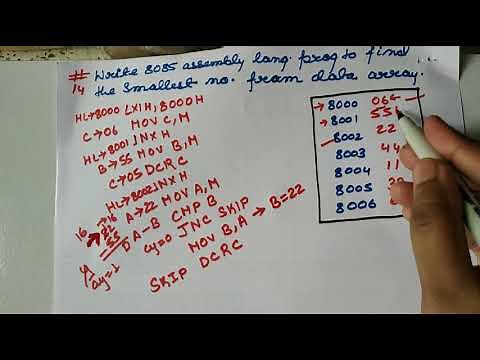 # Write 8085 assembly lang. prog to find
14 the smallest no. from data array.
HL→8000 LXI H, 8000H
C→06 MOV C, M
HL→8001 INX H
B→55 MOV B, M
C→05 DCR C
HL→8002 INX H
A→22 MOV A, M
A-B CMP B
cy=0 JNC SKIP
MOV B, A → B=22
SKIP DCR C
16 →16
22
55
cy=1
→8000 06←
→8001 55
8002 22
8003 44
8004 11
8005
8006